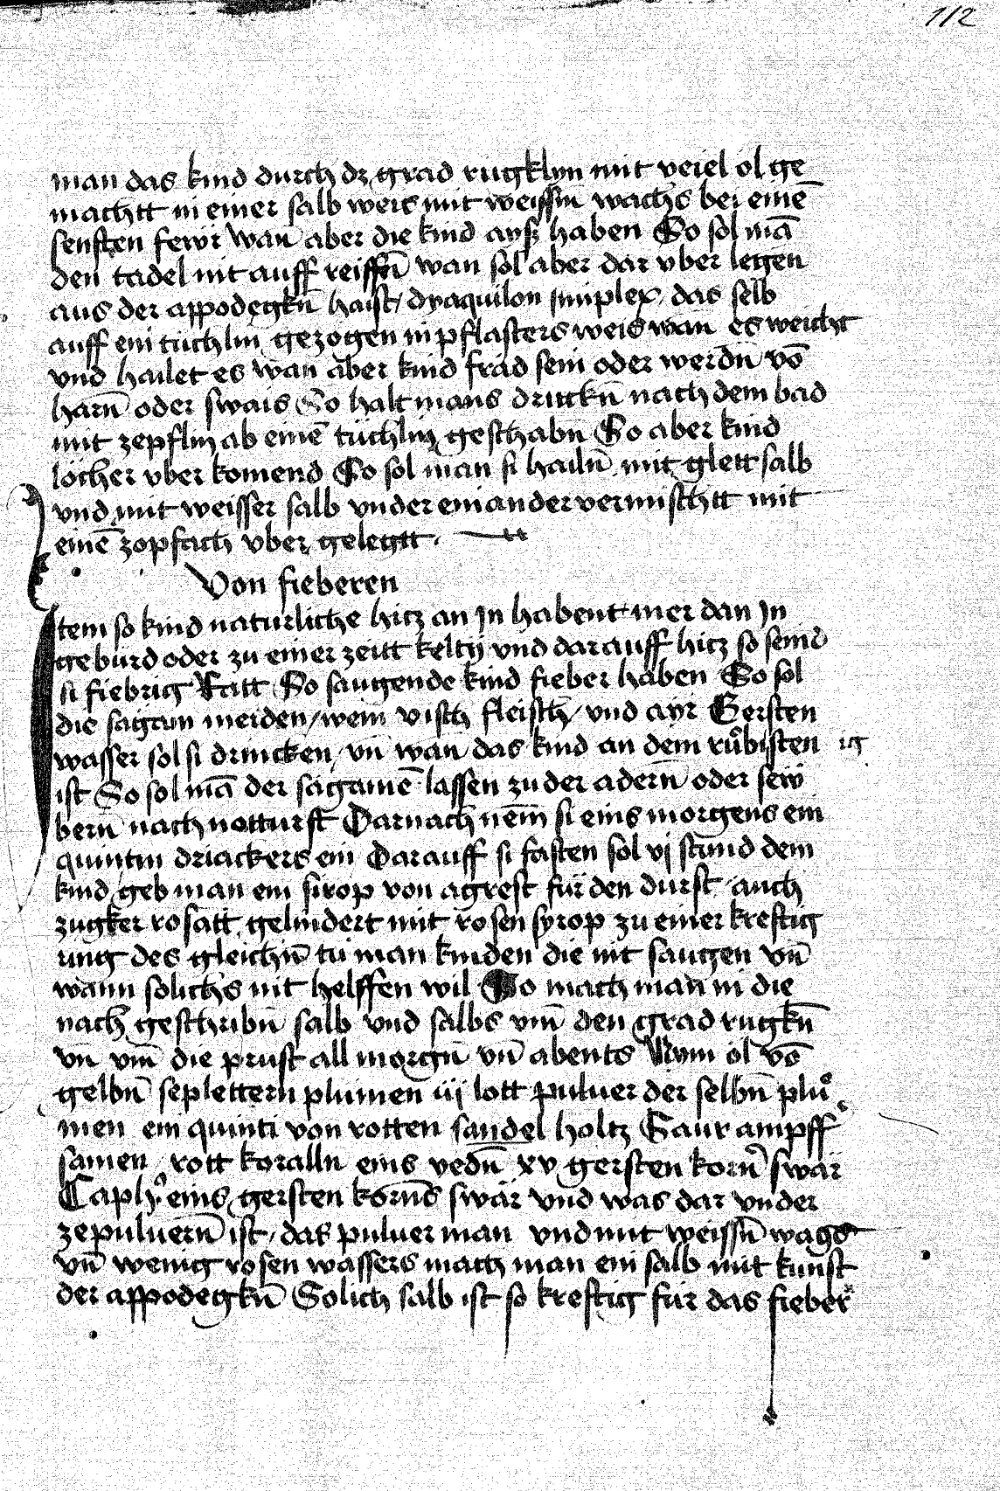 112
man das kind durch dz grad rugklin mit veiel ol ge
machtt in einer salb weis mit weissm̄ wachs bei einē
senften fewr Wan aber die kind ayß haben So sol mā
den tadel nit auff reissn̄ wan sol aber dar vber legen
aus der appodegkn̄ haist / dyaquilon simplex, das selb
auff ein tüchlin gezogen in pflasters weis wan es weicht
vnd hailet es wan aber kind frad sein oder werdn̄ vō
harn̄ oder swais So halt mans druckn̄ nach dem bad
mit zepflin ab einē tüchlin geschabn So aber kind
löcher vber komend So sol man si hailn̄ mit glett salb
vnd mit weisser salb vnder einander vermischtt mit
einē zopfach vber gelegtt.
Von fieberen
Item so kind naturliche hicz an In habent mer dan In
geburd oder zu einer zeitt keltin vnd darauff hicz so seind
si fiebrig Ratt So saugende kind fieber haben So sol
die sagam meiden / wein visch fleisch / vnd ayr Gersten
wasser sol si drincken / vn̄ wan das kind an dem růbisten ig
ist So sol mā der sagamē lassen zu der adern̄ oder sew
bern̄ nach notturft Darnach nem̄ si eins morgens ein
quintin driackers ein Darauff si fasten sol vj stund dem
kind geb man ein sirop von agrest für den durst auch
zugker rosatt gelindert mit rosen syrop zu einer kreftig
ung des gleichn̄ tü man kinden die nit saugen vn̄
wann solichs nit helffen wil So mach man in die
nach geschribn̄ salb vnd salbs vm̄ den grad rugkn̄
vn̄ vm̄ die prust all morgn̄ vn̄ abents Nym öl vō
gelbn̄ seplettern plumen iij lott puluer der selbn̄ plů
men ein quinti von rotten sandel holtz Saur ampff
samen / rott koralln eins yedn̄ xv gersten korn̄ swär
eins gersten korn̄s swär vnd was dar vnder
zepuluern̄ ist / das puluer man vnd mit weissn̄ wags
vn̄ wenig rosen wassers mach man ein salb mit kunst
der appodegkn̄ Solich salb ist so kreftig für das fieber